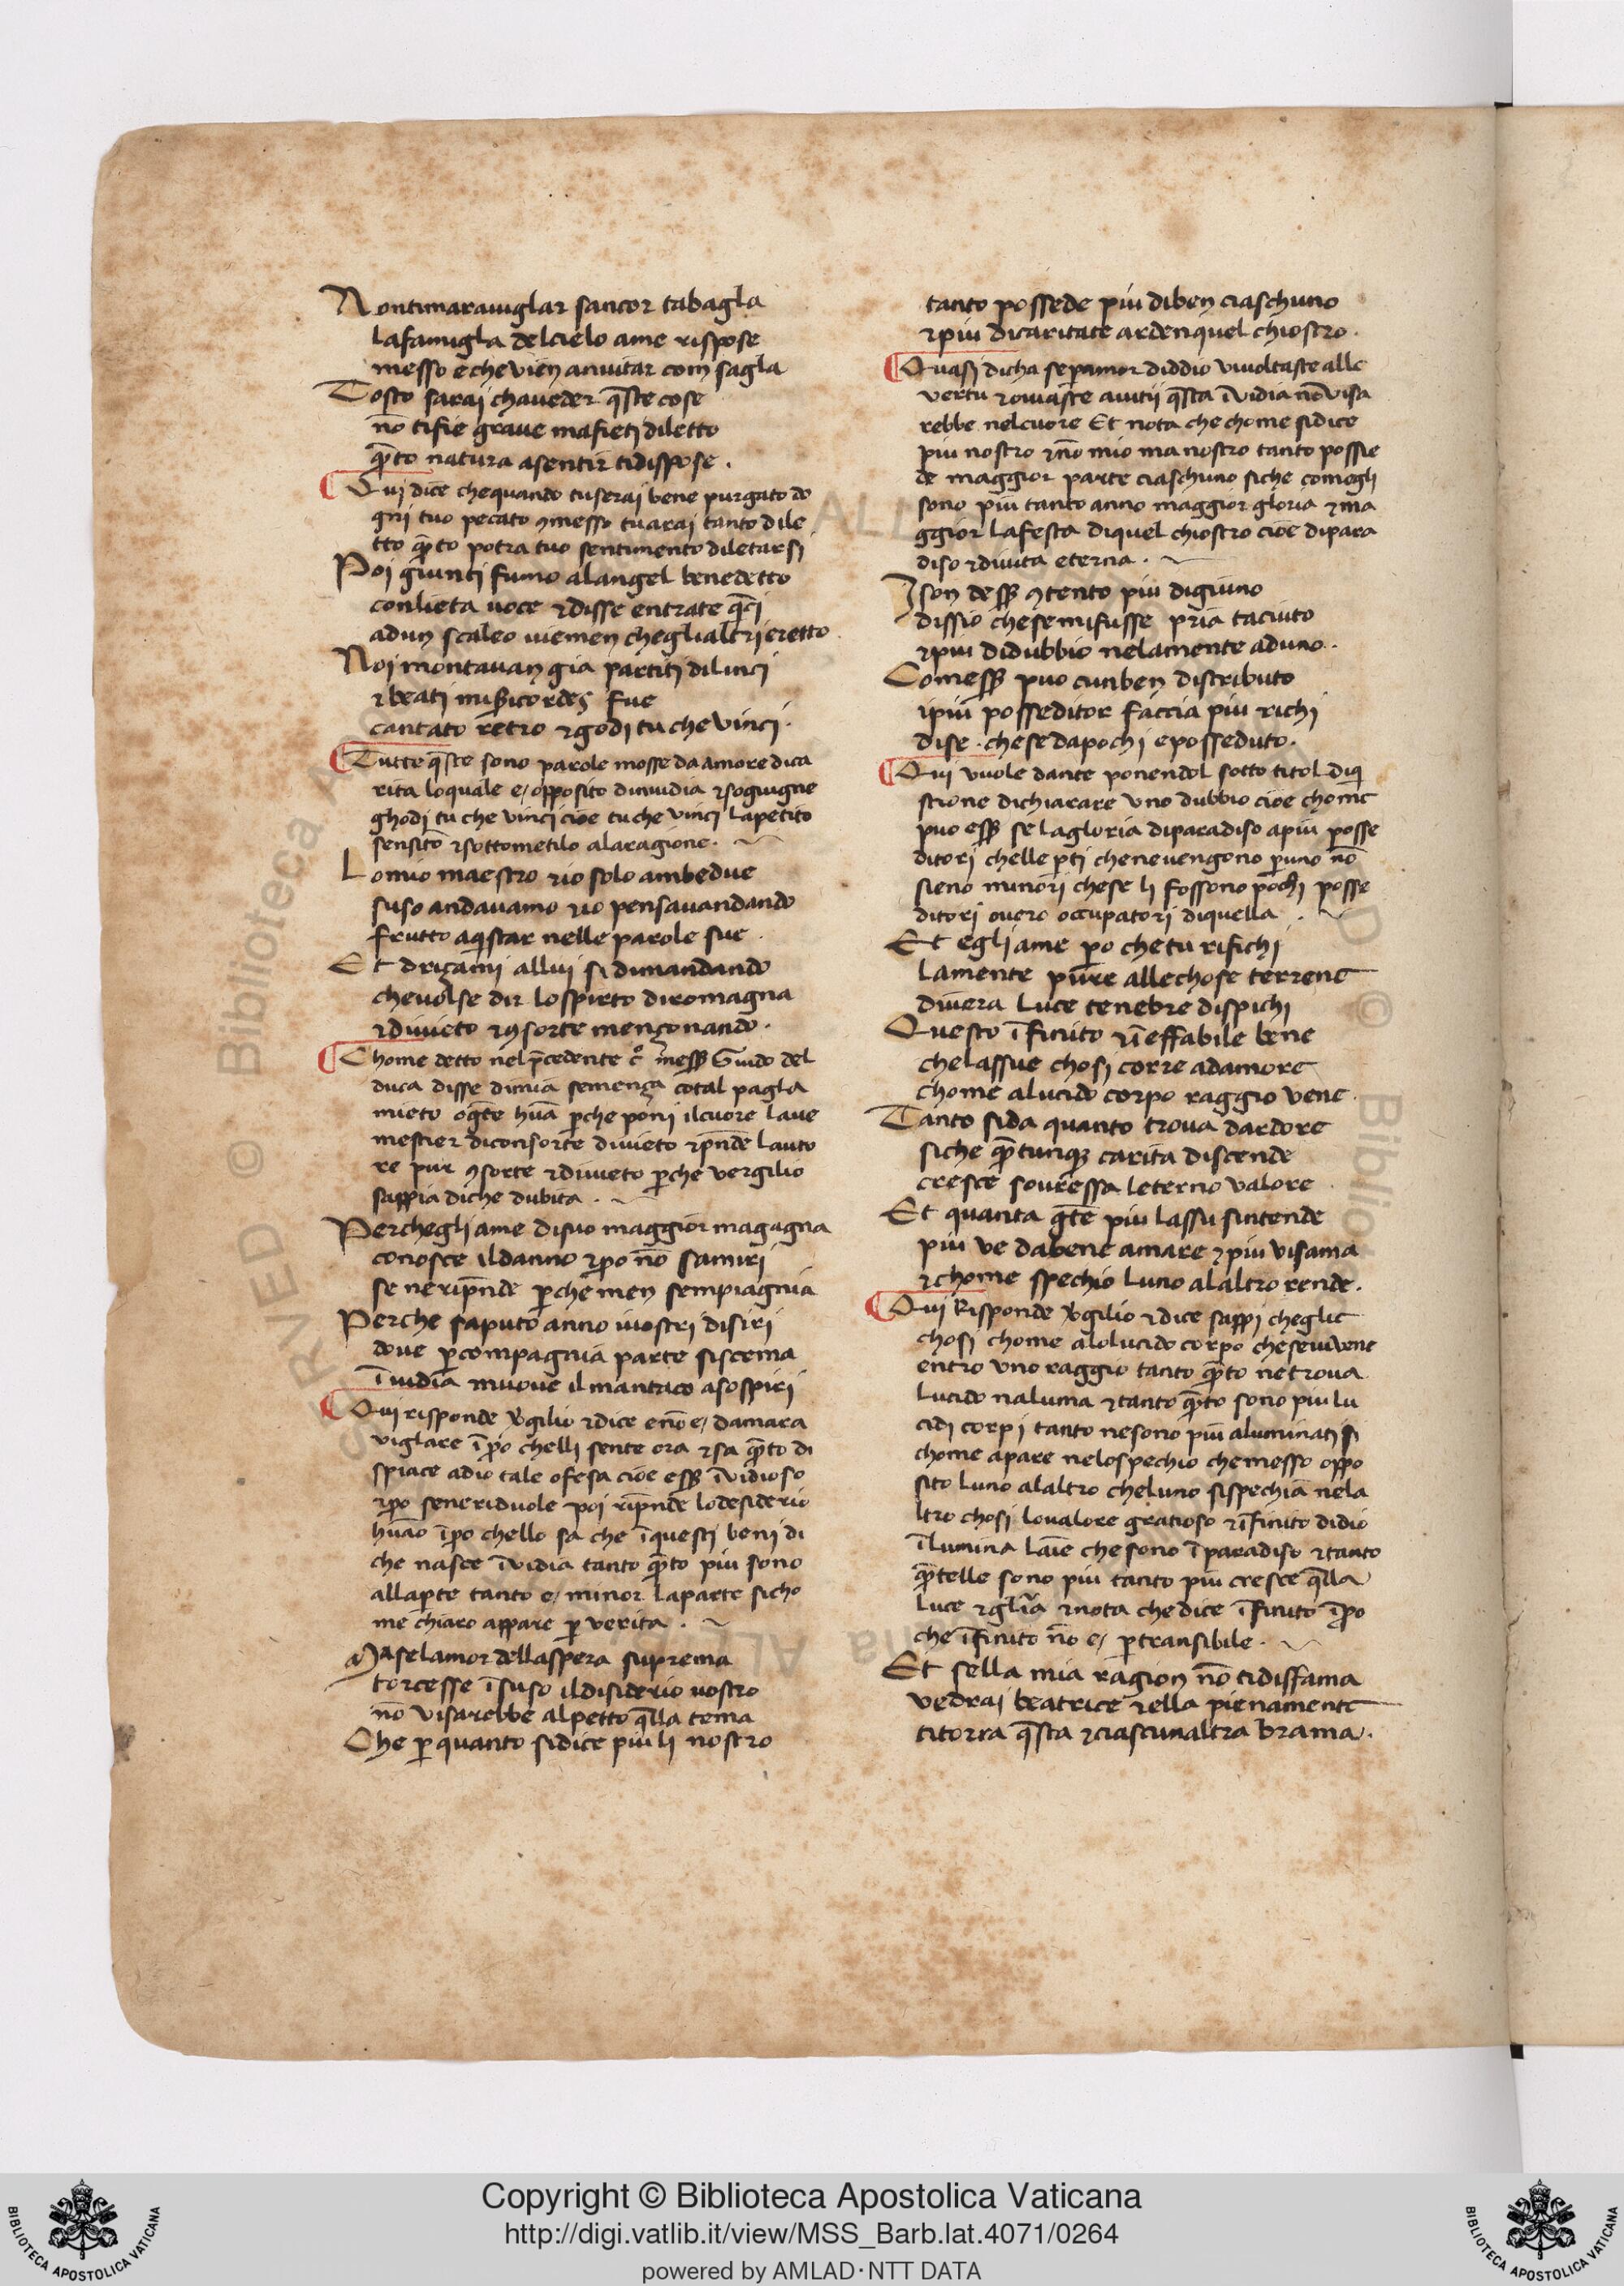 Nontimaravuglar sancor tabagla
lafamigla delcielo ame rispose
messo e chevien anvitar com sagla
Tosto sarai chaveder q̄ste cose
nō tifie grave mafieti diletto
q̄to natura asentir tidispose.
Qui dice chequando tuserai bene purgato do
gni tuo pecato ꝯmesso tuarai tanto dile
tto q̄to potra tuo sentimento diletarsi
Poi giunti fumo alangel benedetto
conlieta voce ⁊disse entrate q̄ci
adun scaleo viemen cheglialtri eretto
Noi montavan gia partiti dilinci
⁊beati misericordes fue
cantato retro ⁊godi tu che vinci.
Tutte q̄ste sono parole mosse da amore dica
rita loquale e/ opposito dinvidia ⁊sogiugne
ghodi tu che vinci cioe tuche vinci lapetito
sensito ⁊sottometilo alaragione.
Lomio maestro ⁊io solo ambedue
suso andavamo ⁊io pensavandando
frutto aqistar nelle parole sue
Et driçami allui si dimandando
chevolse dir lospirto diromagna
⁊divieto ⁊ꝯsorte mençonando.
Chome detto nelp̄cedente c° messꝫ Guido del
duca disse dimia semença cotal pagla
mieto og̃te huā ꝑche poni ilcuore lave
mestier diconsorte divieto ⁊rp̄nde lauto
re pur ꝯsorte ⁊divieto ꝑche vergilio
sappia diche dubita.
Perchegli ame disuo maggior magagna
conosce ildanno ⁊ꝑo nō samiri
se ne rip̄nde ꝑche men sempiagnia
Perche saputo anno ivostri disiri
dove ꝑcompagnia parte siscema
ī vidia muove ilmantaco asospiri
Qui risponde v̄gilio ⁊dice enō e/ damara
viglare īꝑo chelli sente ora ⁊sa q̄to di
spiace adio tale ofesa cioe essꝫ īvidioso
⁊ꝑo seneriduole poi rip̄nde lodesiderio
huāo īꝑo chello sa che īquesti beni di
che nasce īvidia tanto q̄to piu sono
allaꝑte tanto e/ minor laparte sicho
me chiaro appare ꝑ verita.
Ma selamor dellaspera suprema
torcesse ī suso ildisiderio vostro
nō visarebbe alpetto q̄lla tema
Che ꝑ quanto sidice piu li nostro
tanto possede piu diben ciaschuno
⁊piu dicaritate arden quel chiostro.
Quasi dicha seꝑamor diddio vivoltaste alle
vertu ⁊oviaste avitii q̄sta īvidia nō visa
rebbe nelcuore Et nota che chome sidice
piu nostro ⁊nō mio ma nostro tanto possie
de maggior parte ciaschuno siche comegli
sono piu tanto anno maggior gloria ⁊ma
ggior lafesta diquel chiostro cioe dipara
diso ⁊divita eterna.
Ison dessꝫ ꝯtento piu digiuno
dissio chesemifusse pria taciuto
⁊piu didubbio nelamente aduno.
Comessꝫ puo cunben distributo
ipiu posseditor faccia piu richi
dise. chesedapochi eposseduto.
Qui vuole dante ponendol sotto titol diq̄
stione dichiarare uno dubbio cioe chome
puo essꝫ se lagloria diparadiso apiu posse
ditori chelle ꝑti chenevengono ꝑuno nō
sieno minori chese li fossono pochi posse
ditori overo occupatori diquella.
Et egli ame ꝑo chetu rifichi
lamente pure allechose terrene
divera luce tenebre dispichi
Questo īfinito ⁊īeffabile bene
chelassue chosi corre adamore
chome alucido corpo raggio vene
Tanto sida quanto trova dardore
siche q̄tunqꝫ carita discende
cresce sovressa leterno valore
Et quanta g̃te piu lassu sintende
piu ve dabene amare ⁊piu visama
⁊chome spechio luno alaltro rende.
Qui Risponde v̄gilio ⁊dice sappi cheglie
chosi chome alolucido corpo chesevivene
entro uno raggio tanto q̄to netrova
lucido naluma ⁊tanto q̄to sono piu lu
cidi corpi tanto nesono piu aluminati si
chome apare nelospechio chemesso oppo
sito luno alaltro cheluno sispechia nela
ltro chosi lovalore gratioso ⁊īfinito didio
īlumina laīe che sono īparadiso ⁊tanto
q̄telle sono piu tanto piu cresce q̄lla
luce ⁊glīa ⁊nota che dice īfinito īꝑo
che īfinito nō e/ ꝑtransibile.
Et sella mia ragion nō tidisfama
vedrai beatrice ⁊ella pienamente
titorra q̄sta ⁊ciascunaltra brama.
Copyright © Biblioteca Apostolica Vaticana
http://digi.vatlib.it/view/MSS_Barb.lat.4071/0264
powered by AMLAD·NTT DATA
BIBLIOTECA APOSTOLICA VATICANA
BIBLIOTECA APOSTOLICA VATICANA